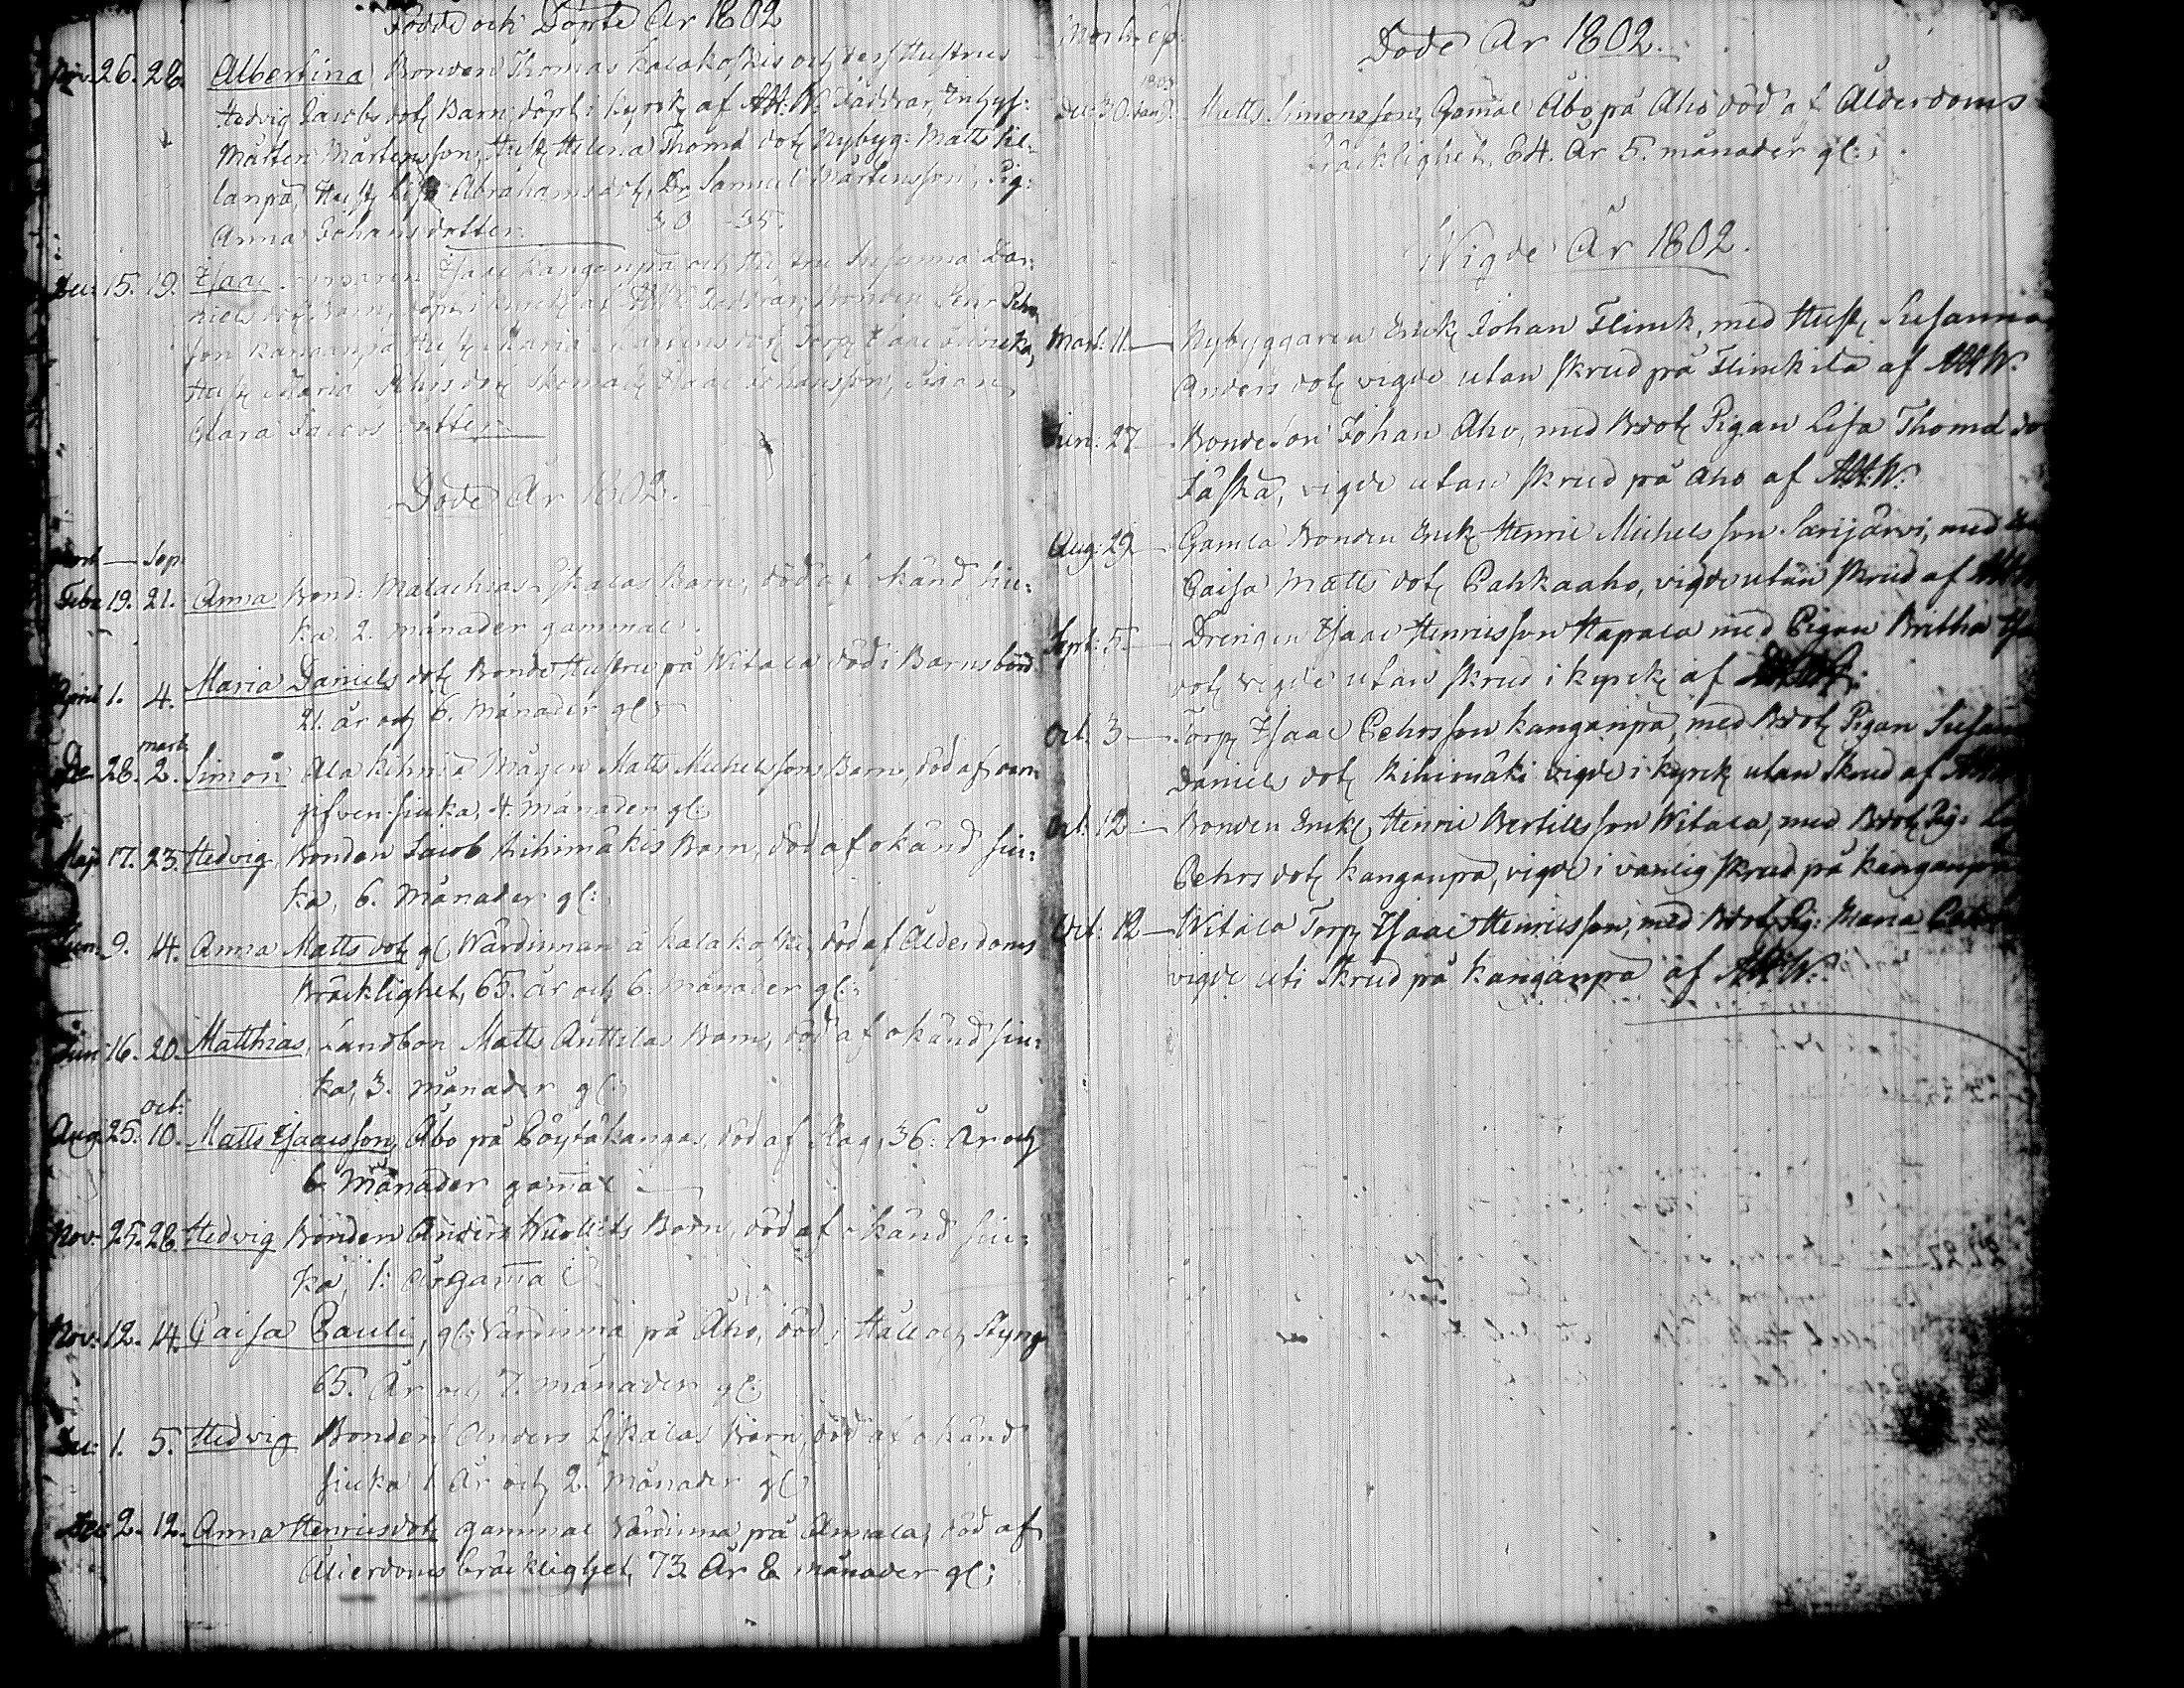 Födde och Döpte År 1802
Nov: 26. 28. Albertina Bonden Thomas Kalakoskis och dess Hustrus
Hedvig Jacobs dotr Barn, döpt i kyrck af AH: W: Faddrar, Inhys:
Mårten Mårtensson, Hustr Helena Thomæ dotr Nybyg: Matts Sil-
lanpä, Hustr Lisa Abrahams dotr, Dr Samuel Mårtensson, Pig:
Anna Johans dotter. 30 - 35.
Dec: 15. 19. Isaac Isaac Kanganpä och Hustru Susanna Da-
niels dotr Barn, döpt i kyrck af AH: W: Faddrar, Bonden Pehr Pehrs
son Kanganpä Hustr Maria dotr Torp Isaac
Hustr Maria Pehrs dotr Isaac Johansson, Pigan
Clara Jacobs dotter
Döde År 1802.
Mort — Sep:
Febr 19. 21. Anna Bond: Malachias Skalas Barn, död af okänd siu-
ka, 2. månader gammal.
April 1. 4. Maria Daniels dotr Bonde Hustru på Witala död i Barnsbörd
21. år och 6. Månader gl:
mart:
De 28. 2. Simon Ala Rihniä Mågen Matts Michelssons Barn, död af oan-
gifven siuka, 4. månader gl:
Maji 17. 23. Hedvig, Bonden Jacob Rihimäkis Barn, död af okänd siu-
ka, 6. Månader gl:
Jun: 9. 14. Anna Matts dotr gl: Wärdinnan å Kalakoski, död af Ålderdoms
Bräcklighet, 65. år och 6. Månader gl:
Jun: 16. 20. Matthias, Landbon Matts Anttilas Barn, död af okänd siu-
ka, 3. månader gl:
oct:
Aug: 25. 10. Matts Isaacsson, Åbo på Pöytäkangas, död af Slag, 36: År och
6 Månader gamal
Nov: 25. 28. Hedvig Bonden Anders Wuollets Barn, död af okänd siu-
ka, 1: års gamal
Nov: 12. 14. Caisa Pauli, gl: Värdinna på Aho, död i Håll och Styng
65. År och 7. månader gl:
Dec: 1. 5. Hedvig Bonden Anders Barn, död af okänd
siuka 1 År och 2. Månader gl:
Dec: 2. 12. Anna Henricsdotr gammal Värdinna på Annala, död af
Ålderdoms bräcklighet, 73. År 8 månader gl:
Mort: sep:
Döde År 1802.
1803
Dec: 30. Jan: 2. Matts Simonsson, Gamal Åbo på Aho död af Ålderdoms
bräcklighet, 84. År 5. månader gl:
Wigde År 1802.
Mart: 11. — Nybyggaren Enck Johan Flinck, med Hustr Susanna
Anders dotr vigde utan skrud på Flinckilä af AH: W:
Jun: 27 — Bonde Son Johan Aho, med Bdotr Pigan Lisa Thomæ do
Jäskä, vigde utan skrud på Aho af AH: W:
Aug: 29 — Gamla Bonden Enck Henric Michelsson Sarijärvi, med
Caisa Matts dotr Pahkaaho, vigde utan skrud af AH
Sept: 5. — Drengen Isaac Henricsson Hapala med Pigan Britha
dotr vigde utan skrud i kyrck af
Oct: 3 — Torp Isaac Pehrsson Kanganpä, med Bdotr Pigan Susan
Daniels dotr Rihimäki vigde i kyrck utan Skrud af
Oct: 12 — Bonden Enck Henric Bertillsson Witala, med Bdotr Pig:
Pehrs dotr Kanganpä, vigde i vanlig skrud på Kanganpä
Oct: 12 — Witala Torp Isaac Henricsson, med Bdotr Pig: Maria
vigde uti Skrud på Kanganpä af AH: W: